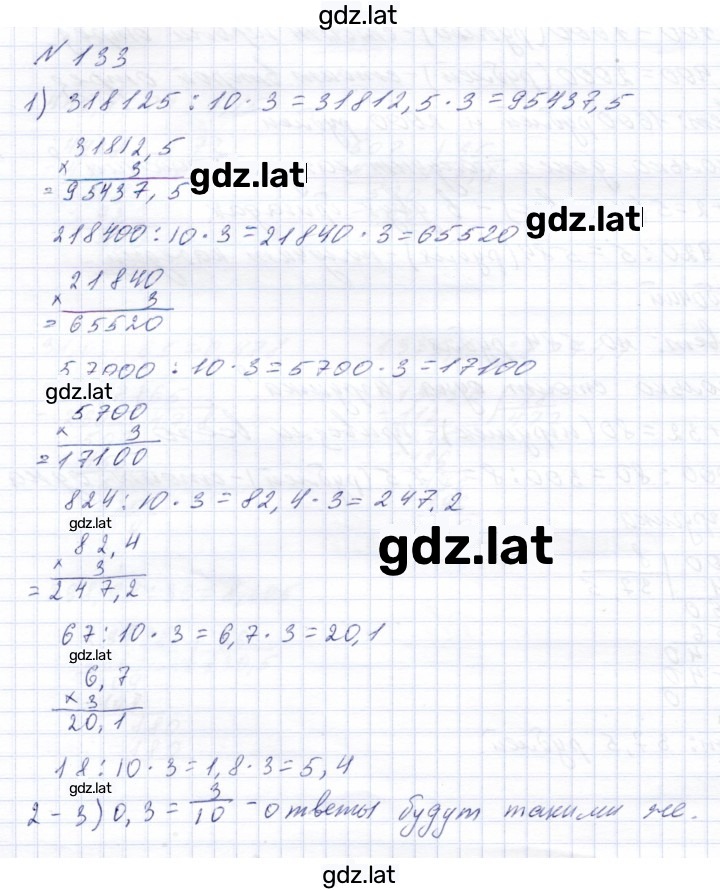 gdz.lat
N 133
1) 318125 : 10 · 3 = 31812,5 · 3 = 95437,5
31812,5
× 3
= 95437,5 gdz.lat
218400 : 10 · 3 = 21840 · 3 = 65520 gdz.lat
21840
× 3
= 65520
57000 : 10 · 3 = 5700 · 3 = 17100
gdz.lat
5700
× 3
= 17100
824 : 10 · 3 = 82,4 · 3 = 247,2
gdz.lat
82,4
× 3
= 247,2
gdz.lat
67 : 10 · 3 = 6,7 · 3 = 20,1
gdz.lat
6,7
× 3
20,1
18 : 10 · 3 = 1,8 · 3 = 5,4
gdz.lat
2 - 3) 0,3 = 3/10 - ответы будут такими же.
gdz.lat